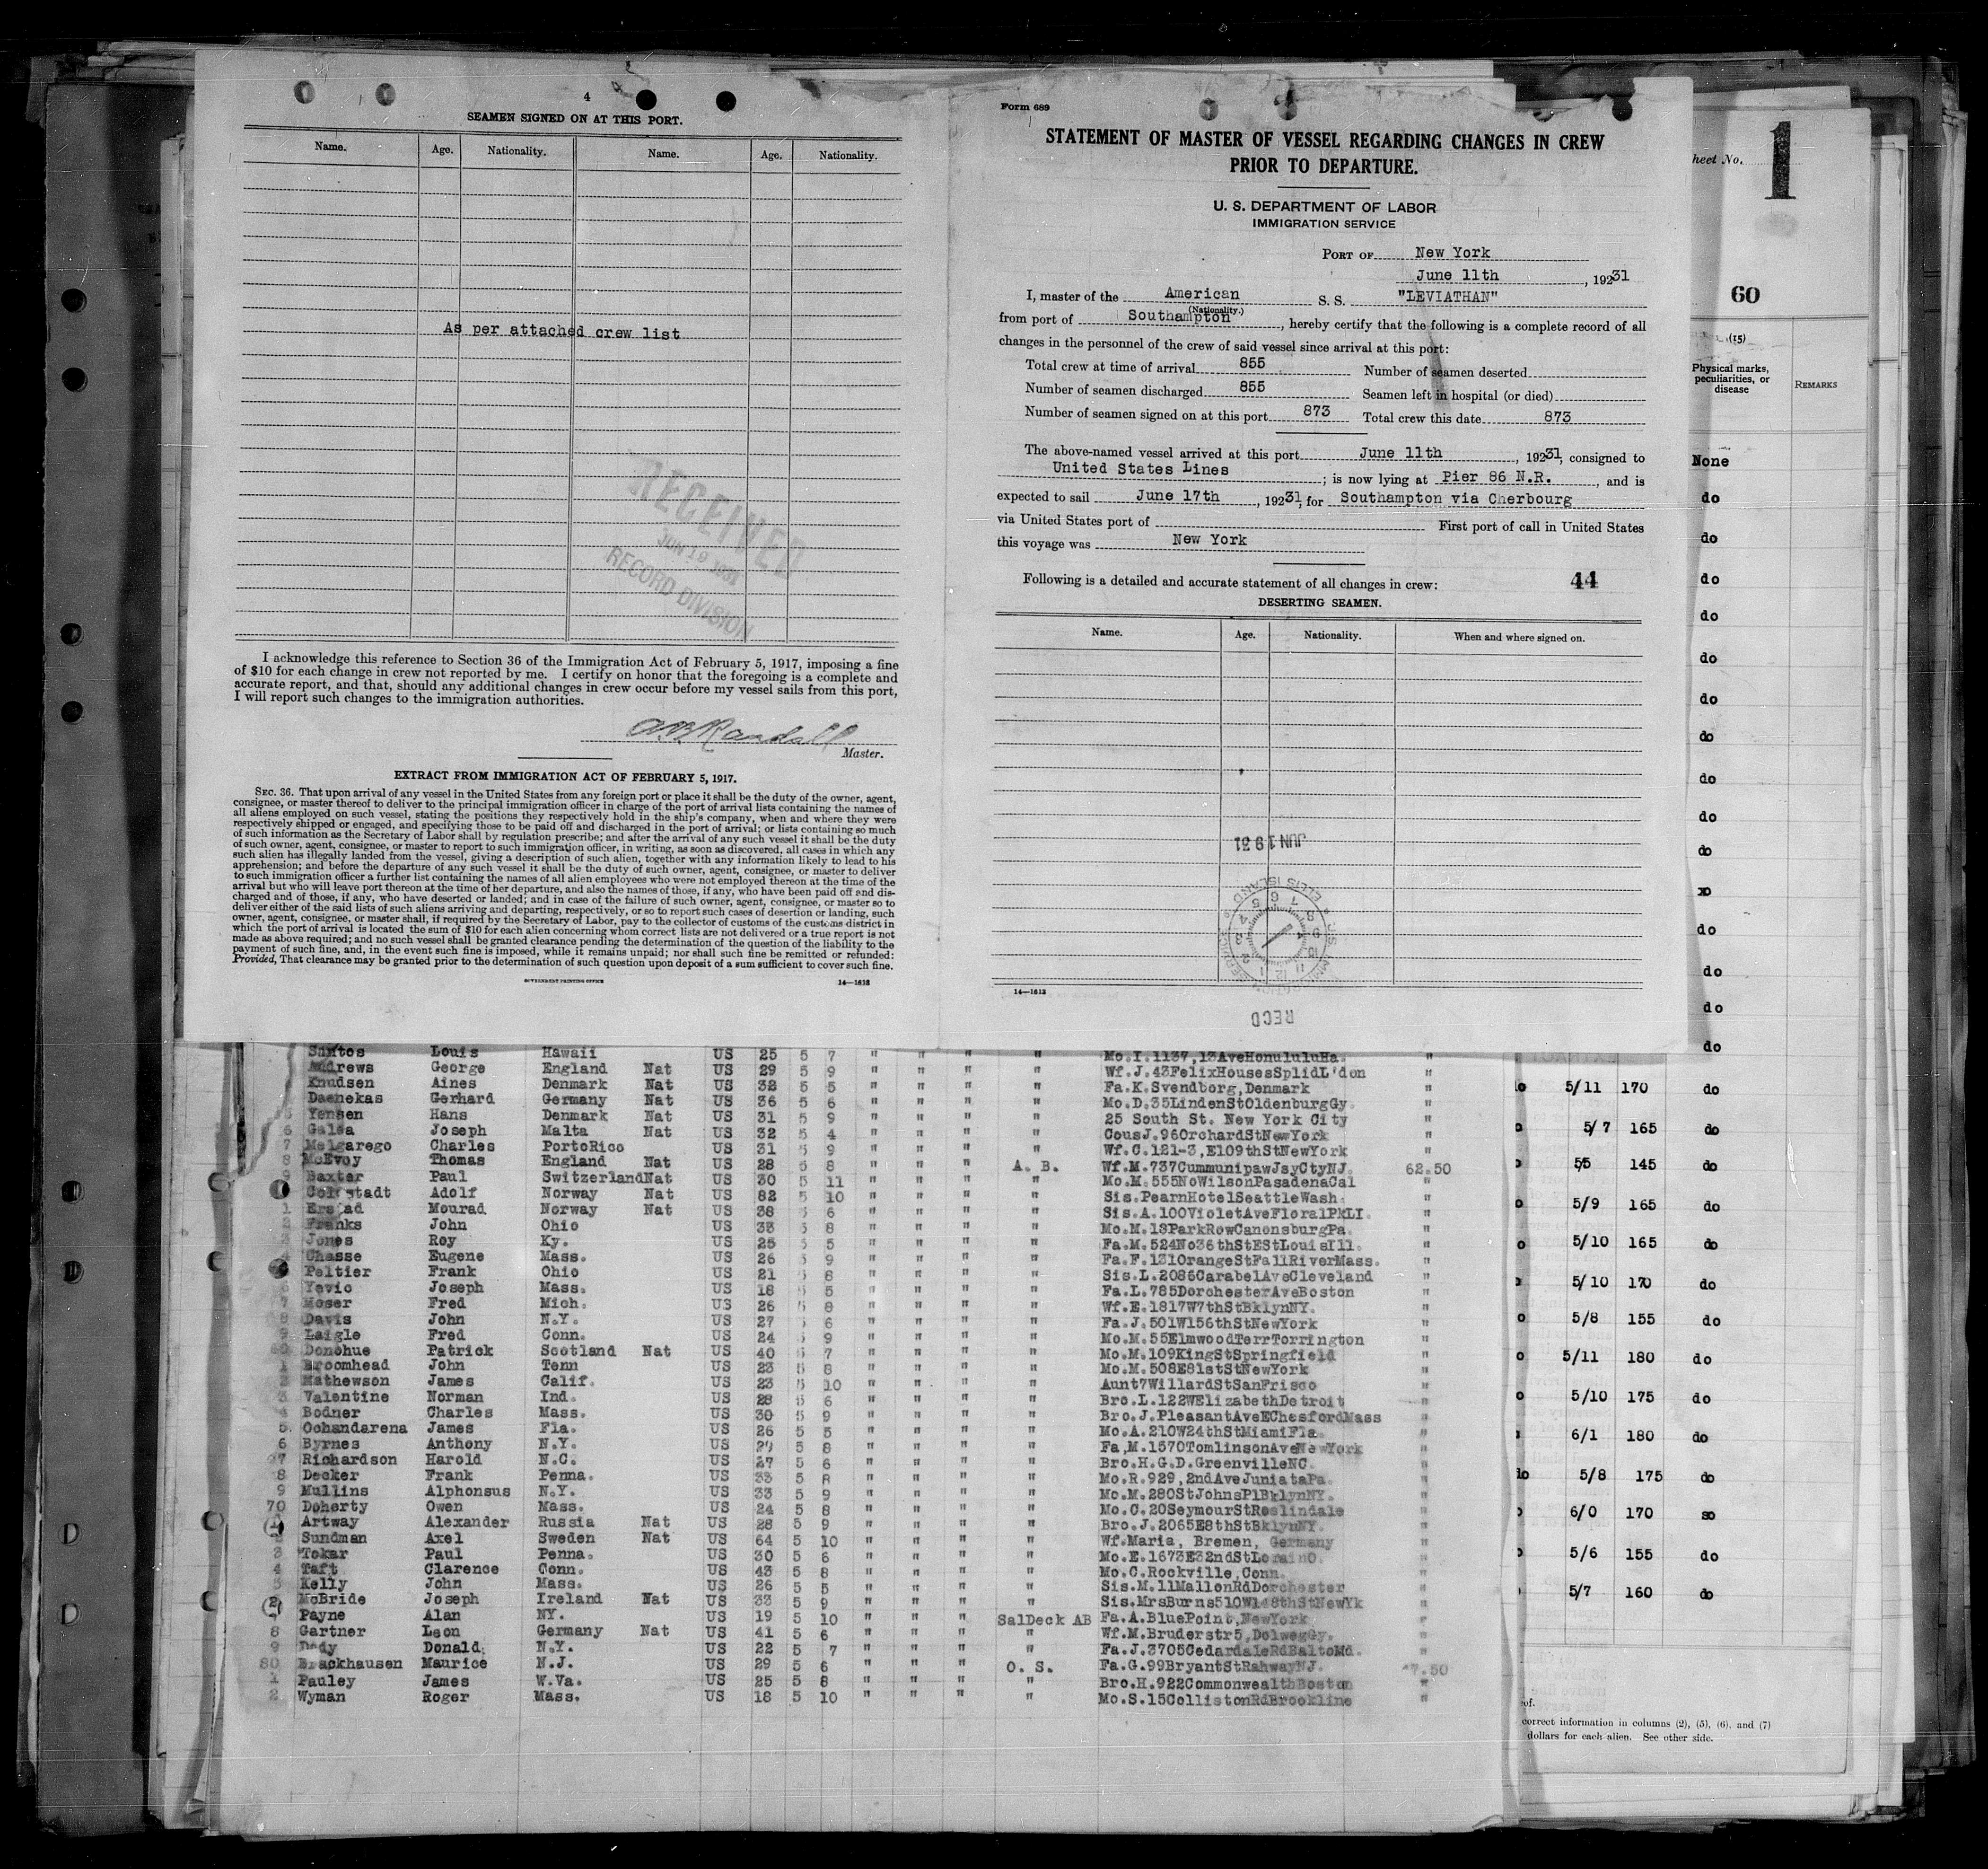 4
SEAMEN SIGNED ON AT THIS PORT.
Name. Age. Nationality. Name. Age. Nationality.
As per attached crew list
RECEIVED
JUN 18 1931
RECORD DIVISION
I acknowledge this reference to Section 36 of the Immigration Act of February 5, 1917, imposing a fine
of $10 for each change in crew not reported by me. I certify on honor that the foregoing is a complete and
accurate report, and that, should any additional changes in crew occur before my vessel sails from this port,
I will report such changes to the immigration authorities.
A B Randall
Master.
EXTRACT FROM IMMIGRATION ACT OF FEBRUARY 5, 1917.
SEC. 36. That upon arrival of any vessel in the United States from any foreign port or place it shall be the duty of the owner, agent,
consignee, or master thereof to deliver to the principal immigration officer in charge of the port of arrival lists containing the names of
all aliens employed on such vessel, stating the positions they respectively hold in the ship's company, when and where they were
respectively shipped or engaged, and specifying those to be paid off and discharged in the port of arrival; or lists containing so much
of such information as the Secretary of Labor shall by regulation prescribe; and after the arrival of any such vessel it shall be the duty
of such owner, agent, consignee, or master to report to such immigration officer, in writing, as soon as discovered, all cases in which any
such alien has illegally landed from the vessel, giving a description of such alien, together with any information likely to lead to his
apprehension; and before the departure of any such vessel it shall be the duty of such owner, agent, consignee, or master to deliver
to such immigration officer a further list containing the names of all alien employees who were not employed thereon at the time of the
arrival but who will leave port thereon at the time of her departure, and also the names of those, if any, who have been paid off and dis-
charged and of those, if any, who have deserted or landed; and in case of the failure of such owner, agent, consignee, or master so to
deliver either of the said lists of such aliens arriving and departing, respectively, or so to report such cases of desertion or landing, such
owner, agent, consignee, or master shall, if required by the Secretary of Labor, pay to the collector of customs of the customs district in
which the port of arrival is located the sum of $10 for each alien concerning whom correct lists are not delivered or a true report is not
made as above required; and no such vessel shall be granted clearance pending the determination of the question of the liability to the
payment of such fine, and, in the event such fine is imposed, while it remains unpaid; nor shall such fine be remitted or refunded:
Provided, That clearance may be granted prior to the determination of such question upon deposit of a sum sufficient to cover such fine.
GOVERNMENT PRINTING OFFICE 14—1612
Form 689
STATEMENT OF MASTER OF VESSEL REGARDING CHANGES IN CREW
PRIOR TO DEPARTURE.
U. S. DEPARTMENT OF LABOR
IMMIGRATION SERVICE
PORT OF New York
June 11th, 1931
I, master of the American S. S. "LEVIATHAN"
(Nationality.)
from port of Southampton, hereby certify that the following is a complete record of all
changes in the personnel of the crew of said vessel since arrival at this port:
Total crew at time of arrival 855 Number of seamen deserted
Number of seamen discharged 855 Seamen left in hospital (or died)
Number of seamen signed on at this port 873 Total crew this date 873
The above-named vessel arrived at this port June 11th, 1931, consigned to
United States Lines; is now lying at Pier 86 N.R., and is
expected to sail June 17th, 1931, for Southampton via Cherbourg
via United States port of First port of call in United States
this voyage was New York
Following is a detailed and accurate statement of all changes in crew: 44
DESERTING SEAMEN.
Name. Age. Nationality. When and where signed on.
JUN 19 31
ELLIS ISLAND
RECD
14—1612
heet No. 1
60
(15)
Physical marks, peculiarities, or disease REMARKS
None
do
do
do
do
do
do
do
do
do
do
do
do
do
do
Santos Louis Hawaii US 25 5 7 " " " " Mo.I.1137,13AveHonululuHa. "
Andrews George England Nat US 29 5 9 " " " " Wf.J.43FelixHousesSplidL'don "
Knudsen Aines Denmark Nat US 32 5 5 " " " " Fa.K.Svendborg,Denmark "
Daenekas Gerhard Germany Nat US 36 5 6 " " " " Mo.D.35LindenStOldenburgGy. "
Yensen Hans Denmark Nat US 31 5 9 " " " " 25 South St. New York City "
6 Galea Joseph Malta Nat US 32 5 4 " " " " CousJ.96OrchardStNewYork "
7 Melgarego Charles PortoRico US 31 5 9 " " " " Wf.C.121-3,E109thStNewYork "
8 McEvoy Thomas England Nat US 28 5 8 " " " A. B. Wf.M.737CummunipawJsyCtyNJ. 62.50
9 Baxter Paul SwitzerlandNat US 30 5 11 " " " " Mo.M.555NoWilsonPasadenaCal "
stadt Adolf Norway Nat US 82 5 10 " " " " Sis.PearnHotelSeattleWash. "
1 Erstad Mourad Norway Nat US 38 5 6 " " " " Sis.A.100VioletAveFloralPkLI. "
2 Franks John Ohio US 33 5 8 " " " " Mo.M.18ParkRowCanonsburgPa. "
3 Jones Roy Ky. US 25 5 5 " " " " Fa.M.524No36thStEStLouisIll. "
4 Chasse Eugene Mass. US 26 5 9 " " " " Fa.F.131OrangeStFallRiverMass. "
Peltier Frank Ohio US 21 5 8 " " " " Sis.L.2086CarabelAveCleveland "
Yavic Joseph Mass. US 18 5 5 " " " " Fa.L.785DorchesterAveBoston "
7 Moser Fred Mich. US 26 5 8 " " " " Wf.E.1817W7thStBklynNY. "
8 Davis John N.Y. US 27 5 6 " " " " Fa.J.501W156thStNewYork "
9 Laigle Fred Conn. US 24 5 9 " " " " Mo.M.55ElmwoodTerrTorrington "
60 Donohue Patrick Scotland Nat US 40 5 7 " " " " Mo.M.109KingStSpringfield "
1 Broomhead John Tenn US 23 5 8 " " " " Mo.M.508E81stStNewYork "
2 Mathewson James Calif. US 23 5 10 " " " " Aunt7WillardStSanFrisco "
3 Valentine Norman Ind. US 28 5 6 " " " " Bro.L.122WElizabethDetroit "
4 Bodner Charles Mass. US 30 5 9 " " " " Bro.J.PleasantAveEChesfordMass "
5 Ochandarena James Fla. US 26 5 5 " " " " Mo.A.210W24thStMiamiFla. "
6 Byrnes Anthony N.Y. US 29 5 8 " " " " Fa,M.1570TomlinsonAveNewYork "
7 Richardson Harold N.C. US 27 5 6 " " " " Bro.H.G.D.GreenvilleNC. "
8 Decker Frank Penna. US 33 5 8 " " " " Mo.R.929,2ndAveJuniataPa. "
9 Mullins Alphonsus N.Y. US 33 5 9 " " " " Mo.M.280StJohnsPlBklynNY. "
70 Doherty Owen Mass. US 24 5 8 " " " " Mo.C.20SeymourStRoslindale "
1 Artway Alexander Russia Nat US 28 5 9 " " " " Bro.J.2065E8thStBklynNY. "
2 Sundman Axel Sweden Nat US 64 5 10 " " " " Wf.Maria, Bremen, Germany "
3 Tokar Paul Penna. US 30 5 6 " " " " Mo.E.1673E32ndStLorainO. "
4 Taft Clarence Conn. US 43 5 8 " " " " Mo.C.Rockville,Conn. "
5 Kelly John Mass. US 26 5 5 " " " " Sis.M.11MallonRdDorchester "
McBride Joseph Ireland Nat US 33 5 9 " " " " Sis.MrsBurns510W148thStNewYk "
7 Payne Alan NY. US 19 5 10 " " " SalDeck AB Fa.A.BluePoint,NewYork "
8 Gartner Leon Germany Nat US 41 5 6 " " " " Wf.M.Bruderstr5,DolwegGy. "
9 Dady Donald. N.Y. US 22 5 7 " " " " Fa.J.3705CedardaleRdBaltoMd. "
80 Brackhausen Maurice N.J. US 29 5 6 " " " O. S. Fa.G.99BryantStRahwayNJ. 47.50
1 Pauley James W.Va. US 25 5 8 " " " " Bro.H.922CommonwealthBoston "
2 Wyman Roger Mass. US 18 5 10 " " " " Mo.S.15CollistonRdBrookline "
do
5/11 170 do
5/7 165 do
55 145 do
5/9 165 do
5/10 165 do
5/10 170 do
5/8 155 do
5/11 180 do
5/10 175 do
6/1 180 do
5/8 175 do
6/0 170 so
5/6 155 do
5/7 160 do
of.
correct information in columns (2), (5), (6), and (7)
dollars for each alien. See other side.